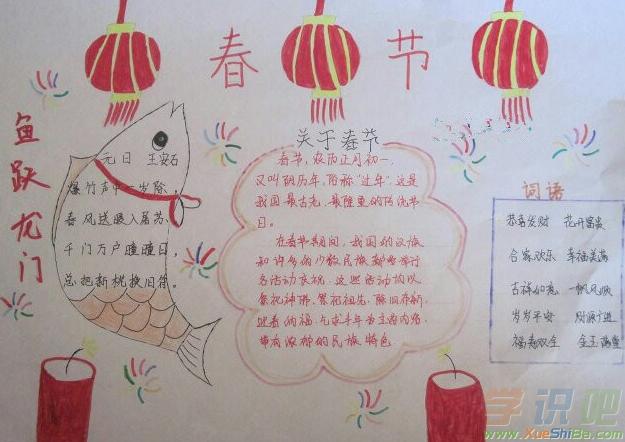 春节
鱼跃龙门
元日 王安石
爆竹声中一岁除，
春风送暖入屠苏，
千门万户曈曈日，
总把新桃换旧符。
关于春节
春节，农历正月初一，
又叫阴历年，俗称“过年”。这是
我国最古老、最隆重的传统节
日。
在春节期间，我国的汉族
和许多的少数民族都要举行
各活动庆祝，这些活动以
祭祀神佛、祭祀祖先、除旧
迎春纳福、乞求丰年为主要内容，
带有浓郁的民族特色
词语
恭喜发财 花开富贵
合家欢乐 幸福美满
吉祥如意 一帆风顺
岁岁平安 财源广进
福寿双全 金玉满堂
学识吧
www.XueShiBa.com